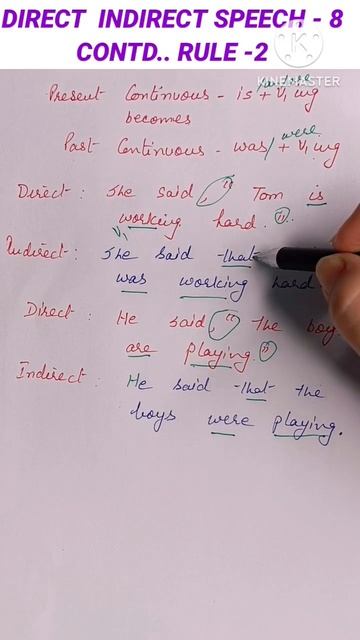 DIRECT INDIRECT SPEECH - 8
CONTD.. RULE -2
KINEMASTER
Present Continuous - is/am/are + V1 ing
becomes
Past Continuous - was/were + V1 ing
Direct : She said, " Tom is
working hard. "
V1
Indirect : She said that
was working hard
Direct : He said, " the boy
are playing. "
Indirect : He said that the
boys were playing.